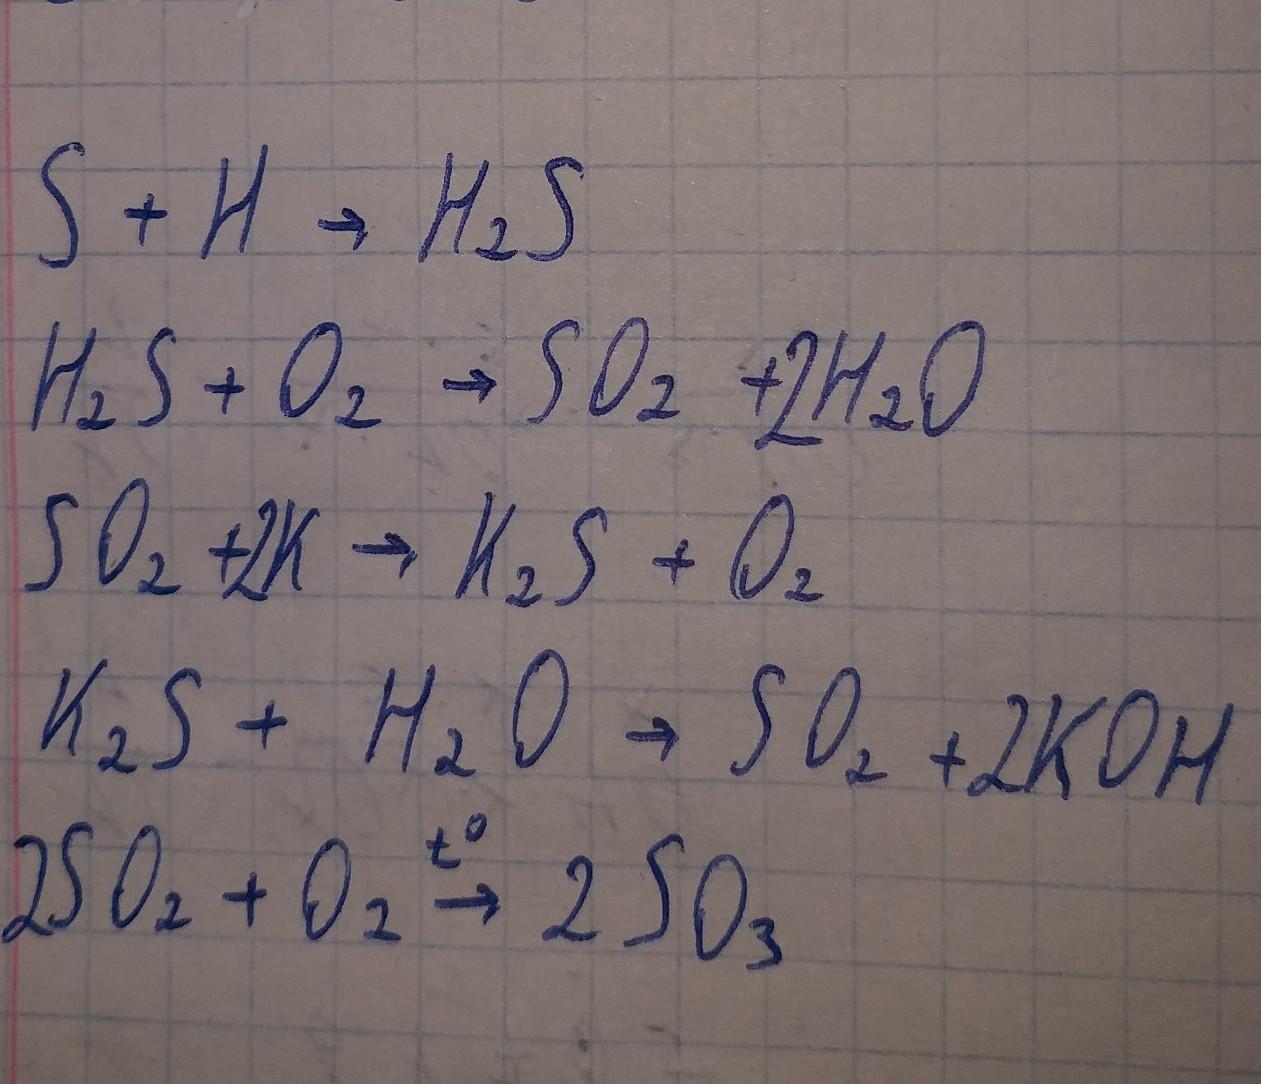 S + H → H₂S
H₂S + O₂ → SO₂ + 2H₂O
SO₂ + 2K → K₂S + O₂
K₂S + H₂O → SO₂ + 2KOH
2SO₂ + O₂ →^{t⁰} 2SO₃